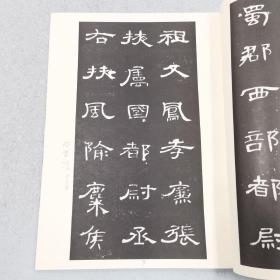 蜀郡西部都尉
祖父鳳孝廉張
掖屬國都尉丞
右扶風隃麋侯